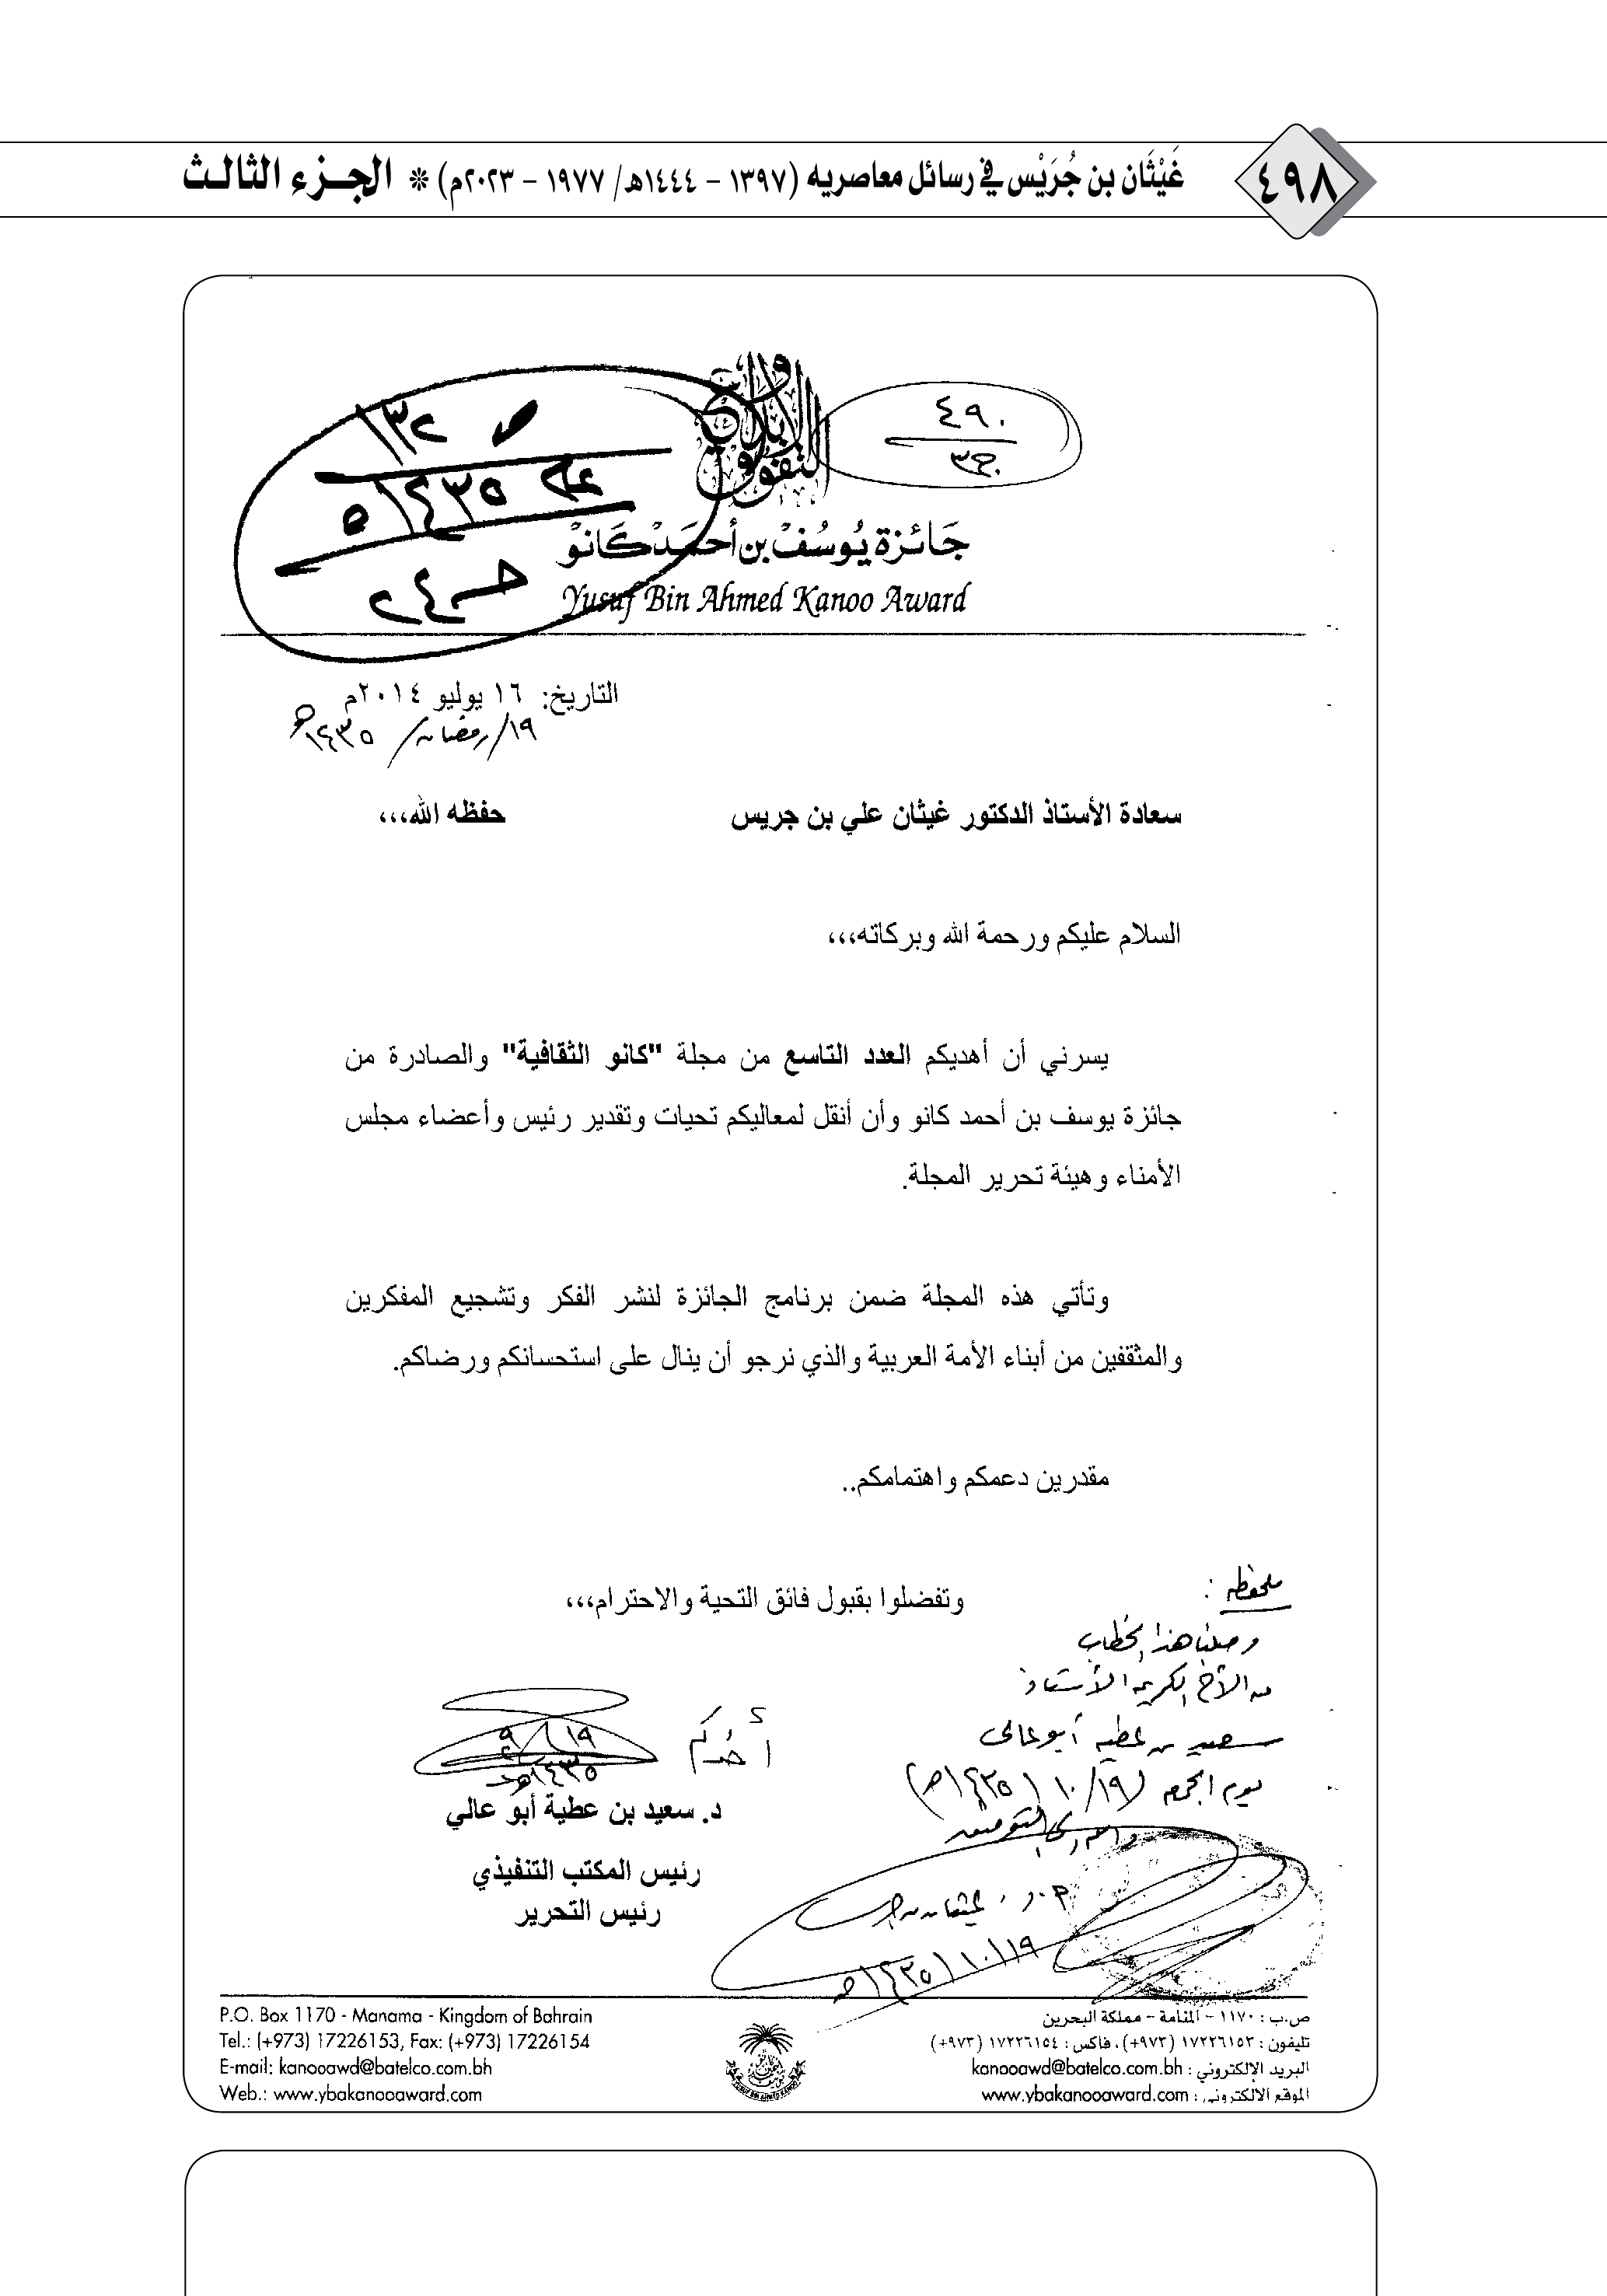 ٤٩٨
غَيْثَان بن جُرَيْس في رسائل معاصريه (١٣٩٧ - ١٤٤٤هـ/ ١٩٧٧ - ٢٠٢٣م) * الجزء الثالث
٤٩٠
ص ١٣٢
١٤٣٥هـ
جائزة يوسف بن أحمد كانو
Yusuf Bin Ahmed Kanoo Award
التاريخ: ١٦ يوليو ٢٠١٤م
١٩/رمضان/١٤٣٥هـ
سعادة الأستاذ الدكتور غيثان علي بن جريس حفظه الله،،،
السلام عليكم ورحمة الله وبركاته،،،
يسرني أن أهديكم العدد التاسع من مجلة "كانو الثقافية" والصادرة من
جائزة يوسف بن أحمد كانو وأن أنقل لمعاليكم تحيات وتقدير رئيس وأعضاء مجلس
الأمناء وهيئة تحرير المجلة.
وتأتي هذه المجلة ضمن برنامج الجائزة لنشر الفكر وتشجيع المفكرين
والمثقفين من أبناء الأمة العربية والذي نرجو أن ينال على استحسانكم ورضاكم.
مقدرين دعمكم واهتمامكم..
وتفضلوا بقبول فائق التحية والاحترام،،،
أخوكم
١٩/٩
١٤٣٥هـ
د. سعيد بن عطية أبو عالي
رئيس المكتب التنفيذي
رئيس التحرير
ملحوظه :
وصلنا هذا الخطاب
من الأخ الكريم الأستاذ
سعيد بن عطيه أبو عالي
يوم الجمعه (١٩/١٠/١٤٣٥هـ)
والله ولي التوفيق
أ.د. غيثان بن جريس
١٩/١٠/١٤٣٥هـ
P.O. Box 1170 - Manama - Kingdom of Bahrain
Tel.: (+973) 17226153, Fax: (+973) 17226154
E-mail: kanooawd@batelco.com.bh
Web.: www.ybakanooaward.com
ص.ب : ١١٧٠ - المنامة - مملكة البحرين
تليفون : ١٧٢٢٦١٥٣ (٩٧٣+)، فاكس : ١٧٢٢٦١٥٤ (٩٧٣+)
البريد الإلكتروني : kanooawd@batelco.com.bh
الموقع الالكتروني : www.ybakanooaward.com